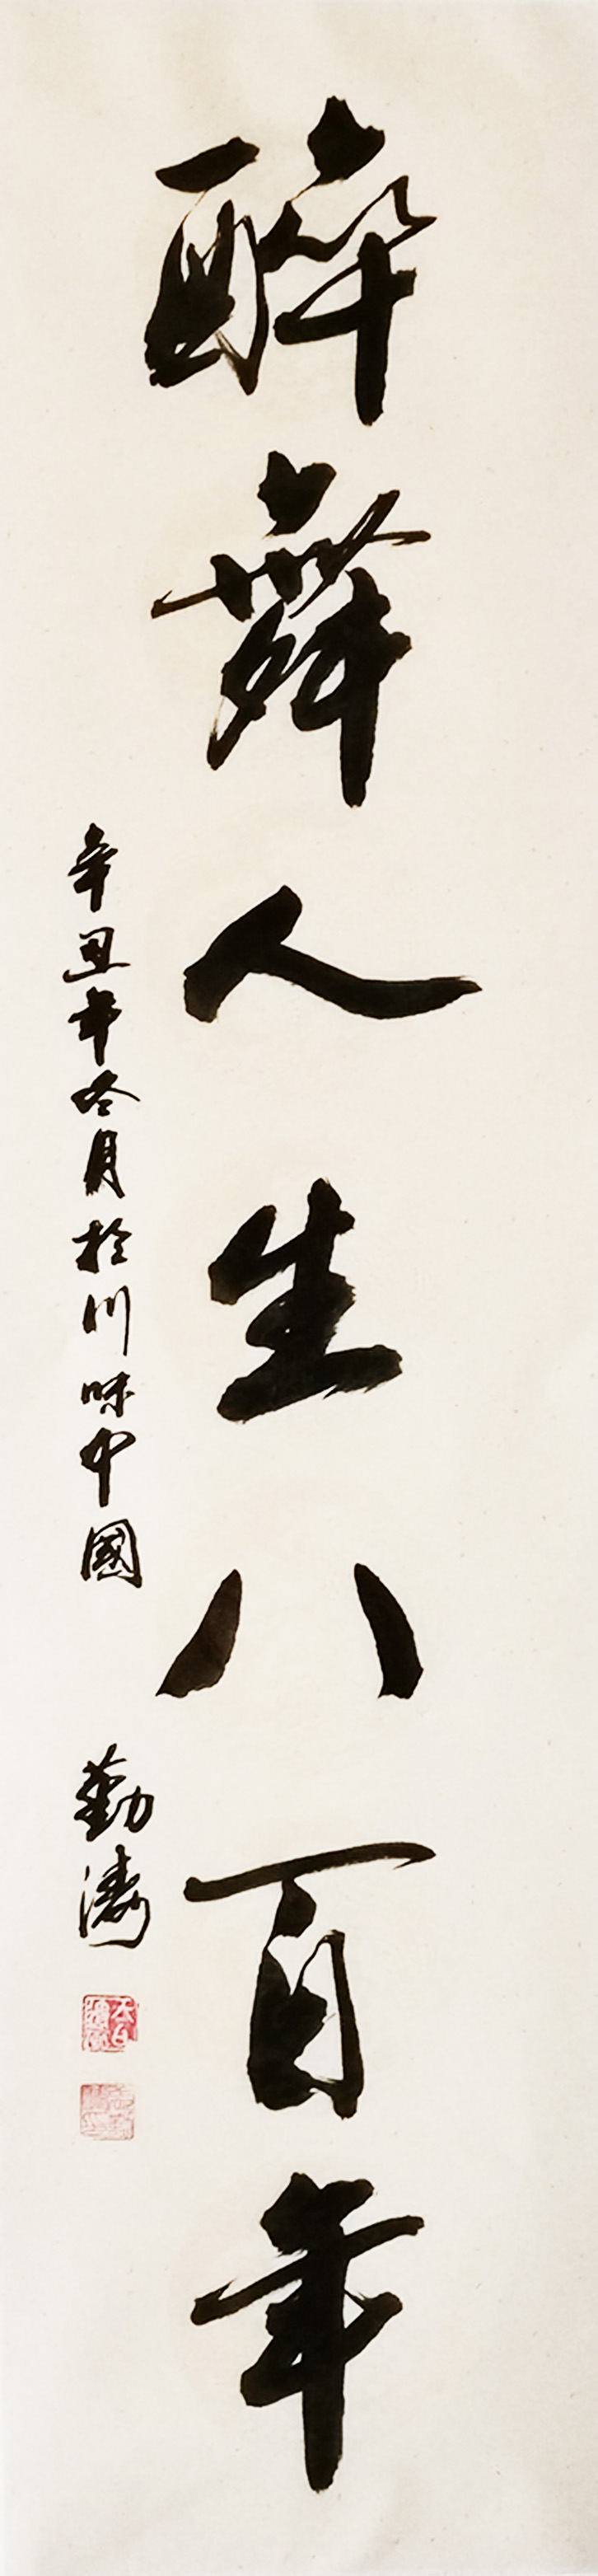 醉舞人生八百年
辛丑年冬月於川味中國
勤濤